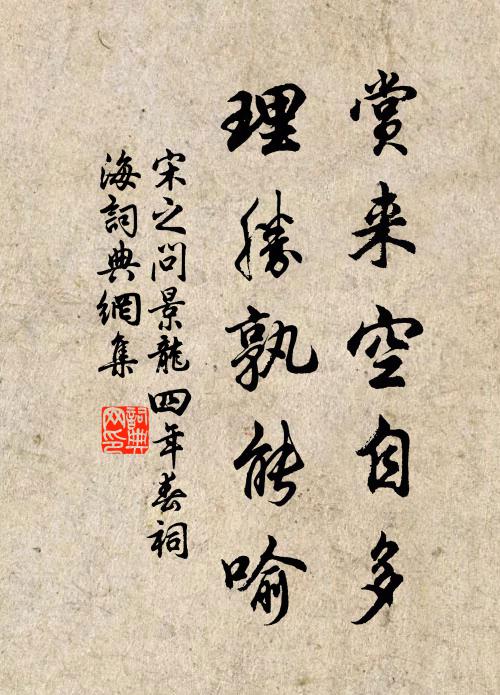 赏来空自多
理勝孰能喻
宋之问景龍四年春祠
海詞典網集
詞典
网印